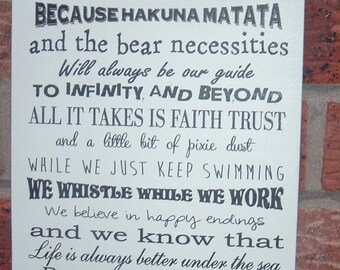 BECAUSE HAKUNA MATATA
and the bear necessities
Will always be our guide
TO INFINITY, AND BEYOND
ALL IT TAKES IS FAITH TRUST
and a little bit of pixie dust
WHILE WE JUST KEEP SWIMMING
WE WHISTLE WHILE WE WORK
We believe in happy endings
and we know that
Life is always better under the sea